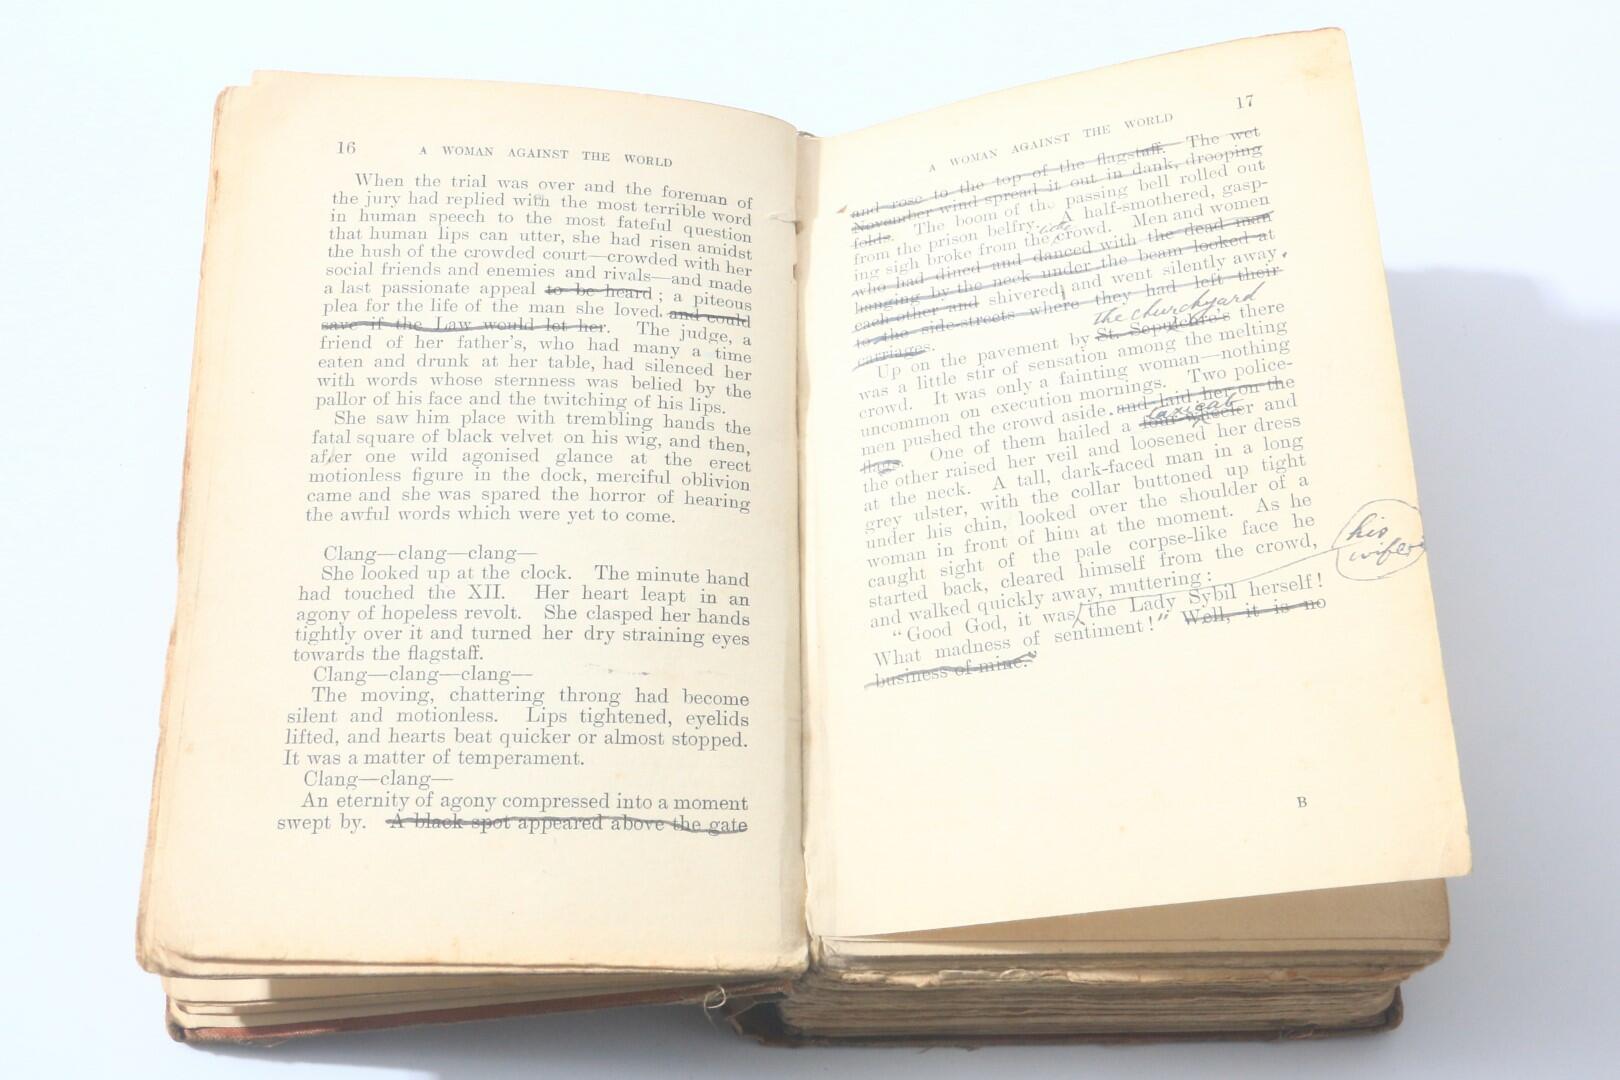 16
A WOMAN AGAINST THE WORLD
When the trial was over and the foreman of
the jury had replied with the most terrible word
in human speech to the most fateful question
that human lips can utter, she had risen amidst
the hush of the crowded court—crowded with her
social friends and enemies and rivals—and made
a last passionate appeal to be heard; a piteous
plea for the life of the man she loved. and could
save if the Law would let her. The judge, a
friend of her father's, who had many a time
eaten and drunk at her table, had silenced her
with words whose sternness was belied by the
pallor of his face and the twitching of his lips.
She saw him place with trembling hands the
fatal square of black velvet on his wig, and then,
after one wild agonised glance at the erect
motionless figure in the dock, merciful oblivion
came and she was spared the horror of hearing
the awful words which were yet to come.
Clang—clang—clang—
She looked up at the clock. The minute hand
had touched the XII. Her heart leapt in an
agony of hopeless revolt. She clasped her hands
tightly over it and turned her dry straining eyes
towards the flagstaff.
Clang—clang—clang—
The moving, chattering throng had become
silent and motionless. Lips tightened, eyelids
lifted, and hearts beat quicker or almost stopped.
It was a matter of temperament.
Clang—clang—
An eternity of agony compressed into a moment
swept by. A black spot appeared above the gate
A WOMAN AGAINST THE WORLD
17
and rose to the top of the flagstaff. The wet
November wind spread it out in dank, drooping
folds. The boom of the passing bell rolled out
from the prison belfry. A half-smothered, gasp-
ing sigh broke from the crowd. Men and women
who had dined and danced with the dead man
hanging by the neck under the beam looked at
each other and shivered, and went silently away.
to the side-streets where they had left their
carriages.
the churchyard
Up on the pavement by St. Sepulchre's there
was a little stir of sensation among the melting
crowd. It was only a fainting woman—nothing
uncommon on execution mornings. Two police-
men pushed the crowd aside. and laid her on the
taxicab
flags. One of them hailed a four-wheeler and
the other raised her veil and loosened her dress
at the neck. A tall, dark-faced man in a long
grey ulster, with the collar buttoned up tight
under his chin, looked over the shoulder of a
woman in front of him at the moment. As he
caught sight of the pale corpse-like face he
started back, cleared himself from the crowd,
and walked quickly away, muttering:
his
wife
"Good God, it was the Lady Sybil herself!
What madness of sentiment!" Well, it is no
business of mine."
B